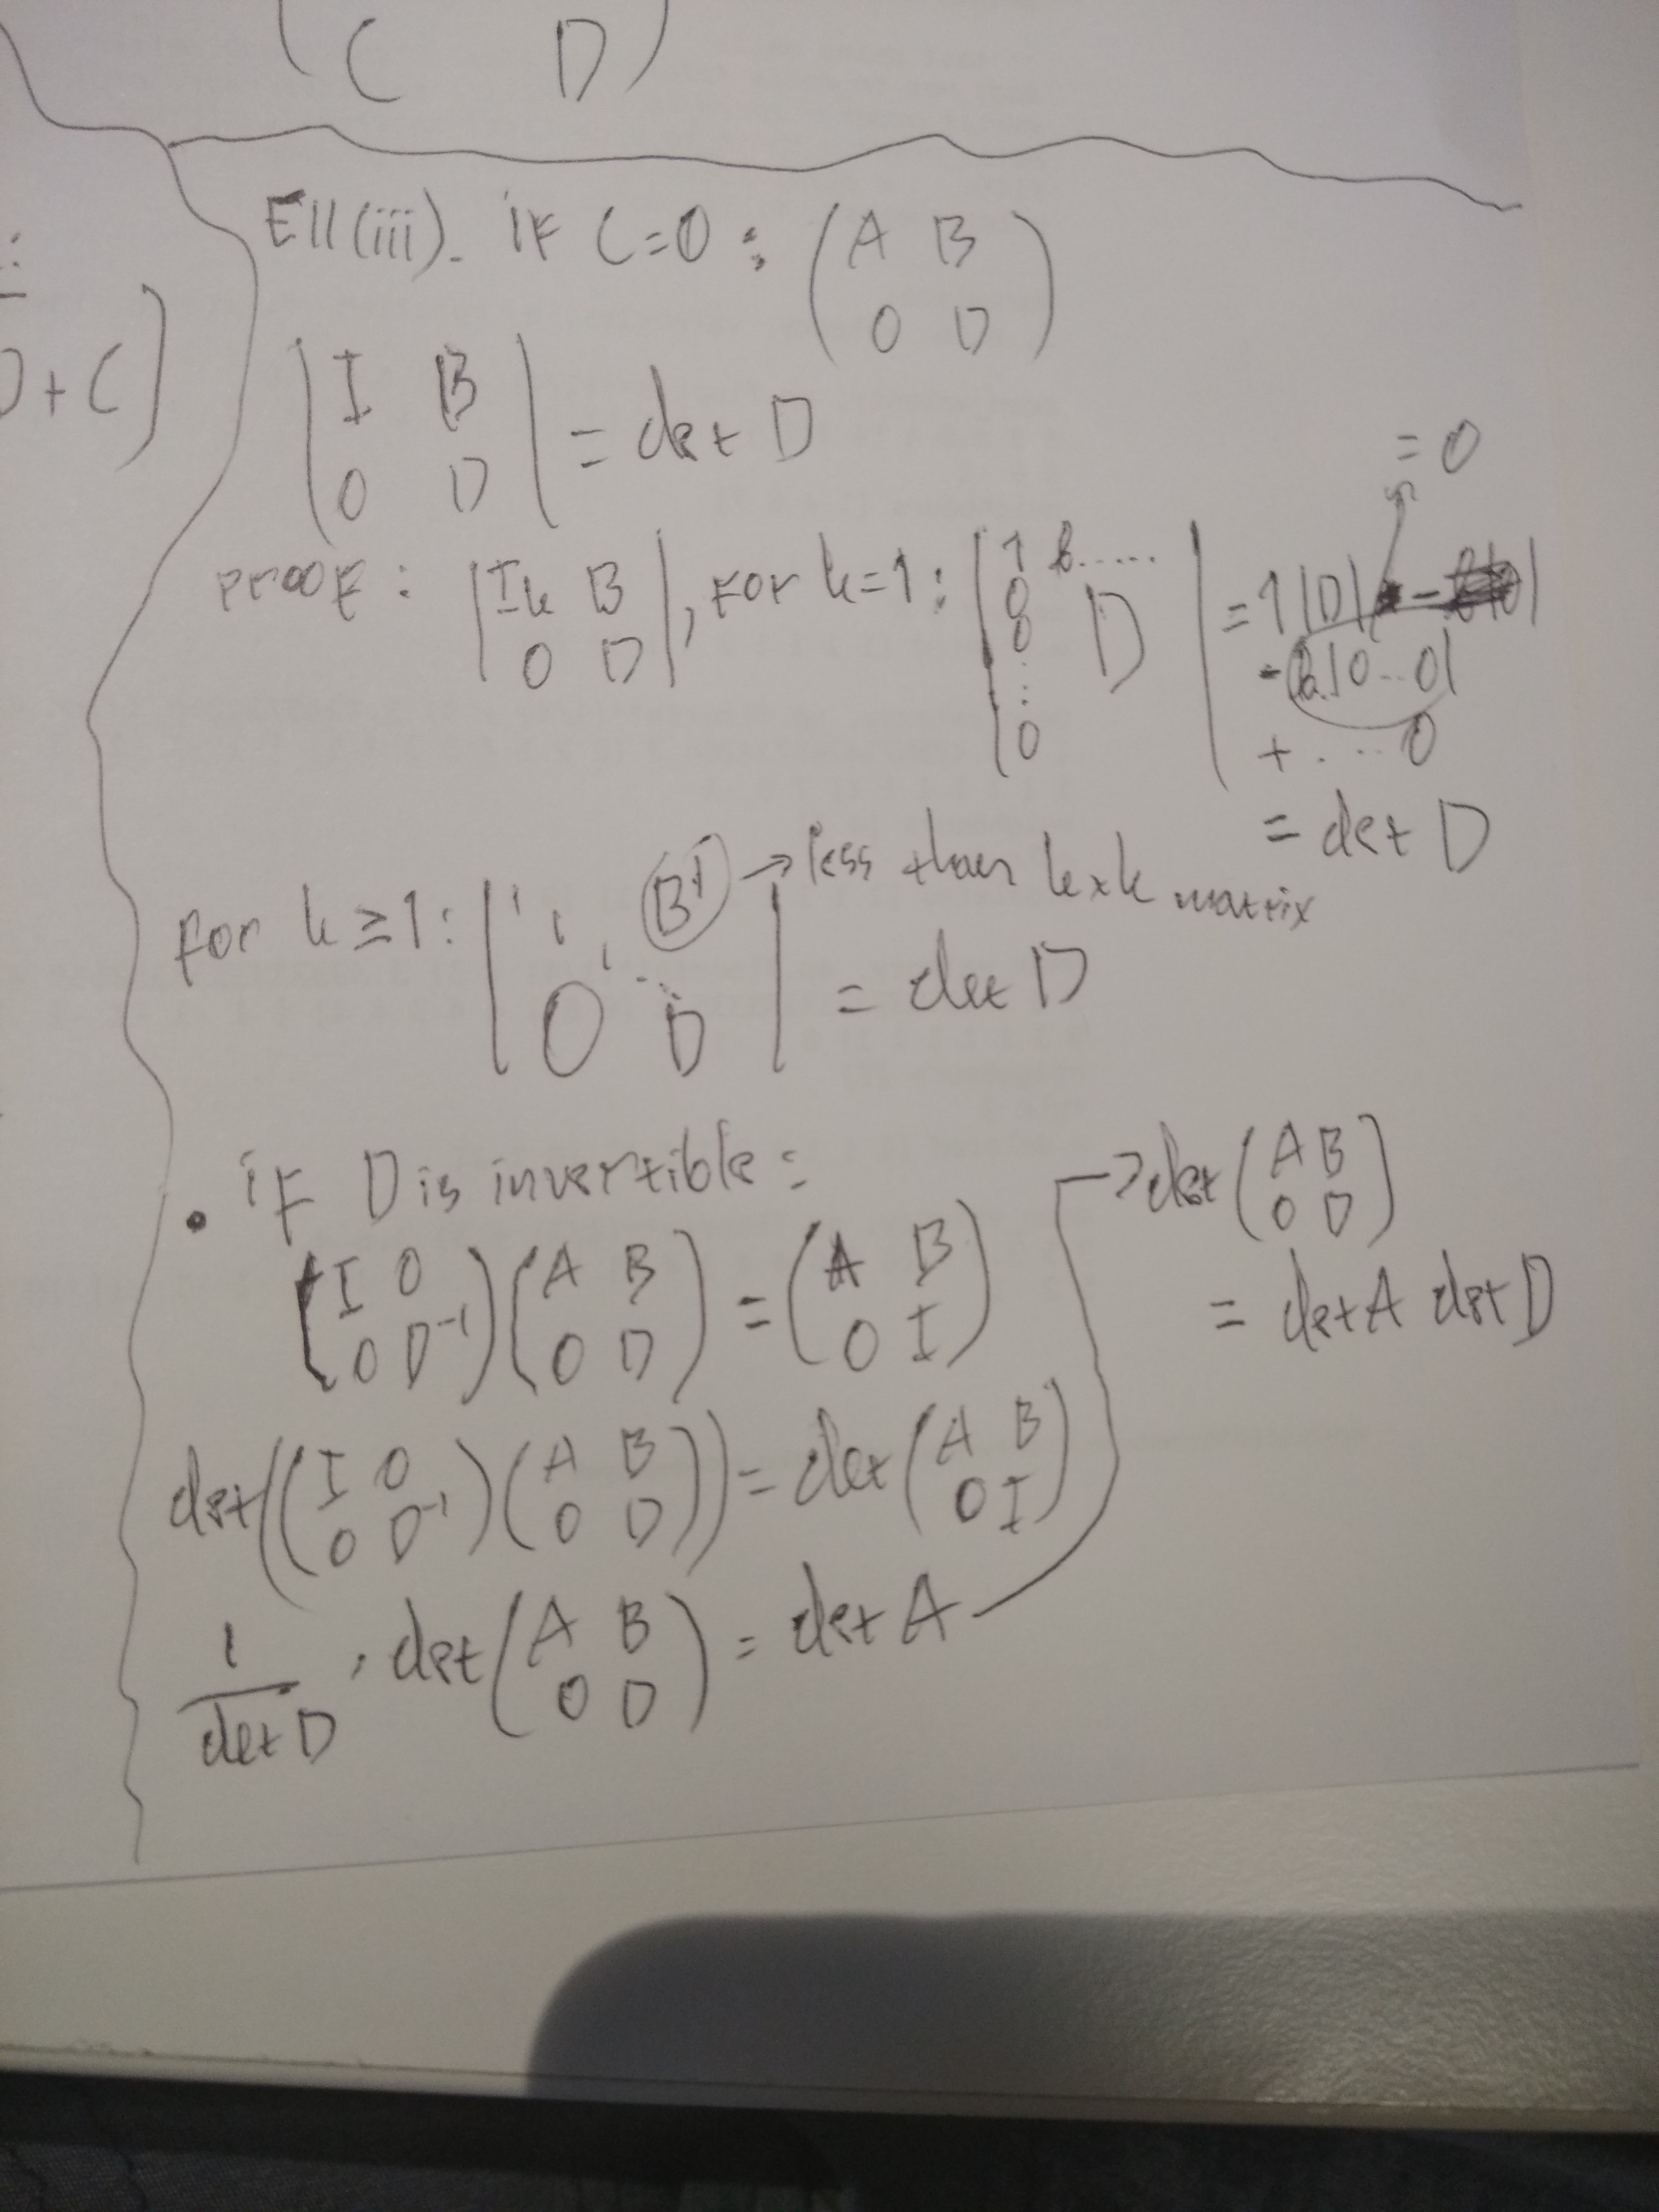 ( C D )
D + C ]
E11(iii). if C=0 : ( A B
0 D )
| I B
0 D | = det D
= 0
proof : | Ik B
0 D | , for k=1 : | 1 b.....
0
0 D
⋮
0 | = 1|D|
- b|0...0|
+ . ... 0
= det D
for k ≥ 1 : | 1 1 1 ... B' → less than k×k matrix
0 D | = det D
• if D is invertible :
( I 0
0 D⁻¹ ) ( A B
0 D ) = ( A B
0 I )
det ( ( I 0
0 D⁻¹ ) ( A B
0 D ) ) = det ( A B
0 I )
1/det D · det ( A B
0 D ) = det A
→ det ( A B
0 D )
= det A det D